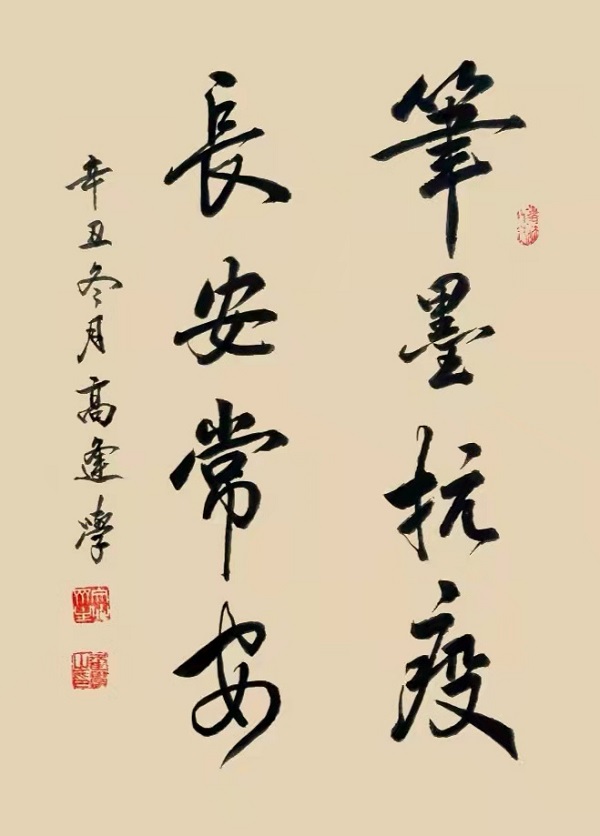 筆墨抗疫
長安常安
辛丑冬月高逢學